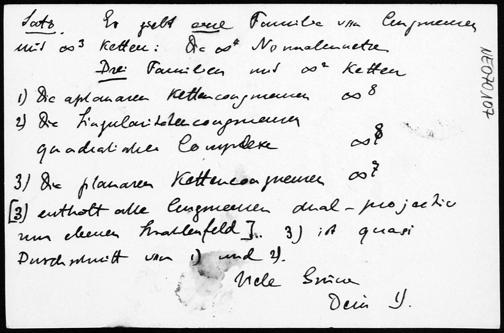 Satz. Es giebt eine Familie von Congruenzen
mit ∞³ Ketten: Die ∞⁸ Normalennetze
Drei Familien mit ∞² Ketten
1) Die aplanaren Kettencongruenzen ∞⁸
2) Die Singularitätencongruenzen
quadratischer Complexe
3) Die planaren Kettencongruenzen ∞⁷
[3) enthält alle Congruenzen dual-projectiv
zum ebenen Strahlenfeld]. 3) ist quasi
Durchschnitt von 1) und 2).
Viele Grüsse
Dein
NE070107